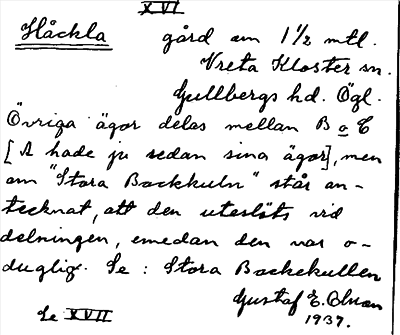 XVI
Håckla gård om 1 1/2 mtl.
Vreta Kloster sn.
Gullbergs hd. Ögl.
Övriga ägor delas mellan B o C
[A hade ju sedan sina ägor], men
om "Stora Backkuln" står an-
tecknat, att den uteslöts vid
delningen, emedan den var o-
duglig. Se: Stora Backekullen
Gustaf E. Olsson
1937.
Se XVII